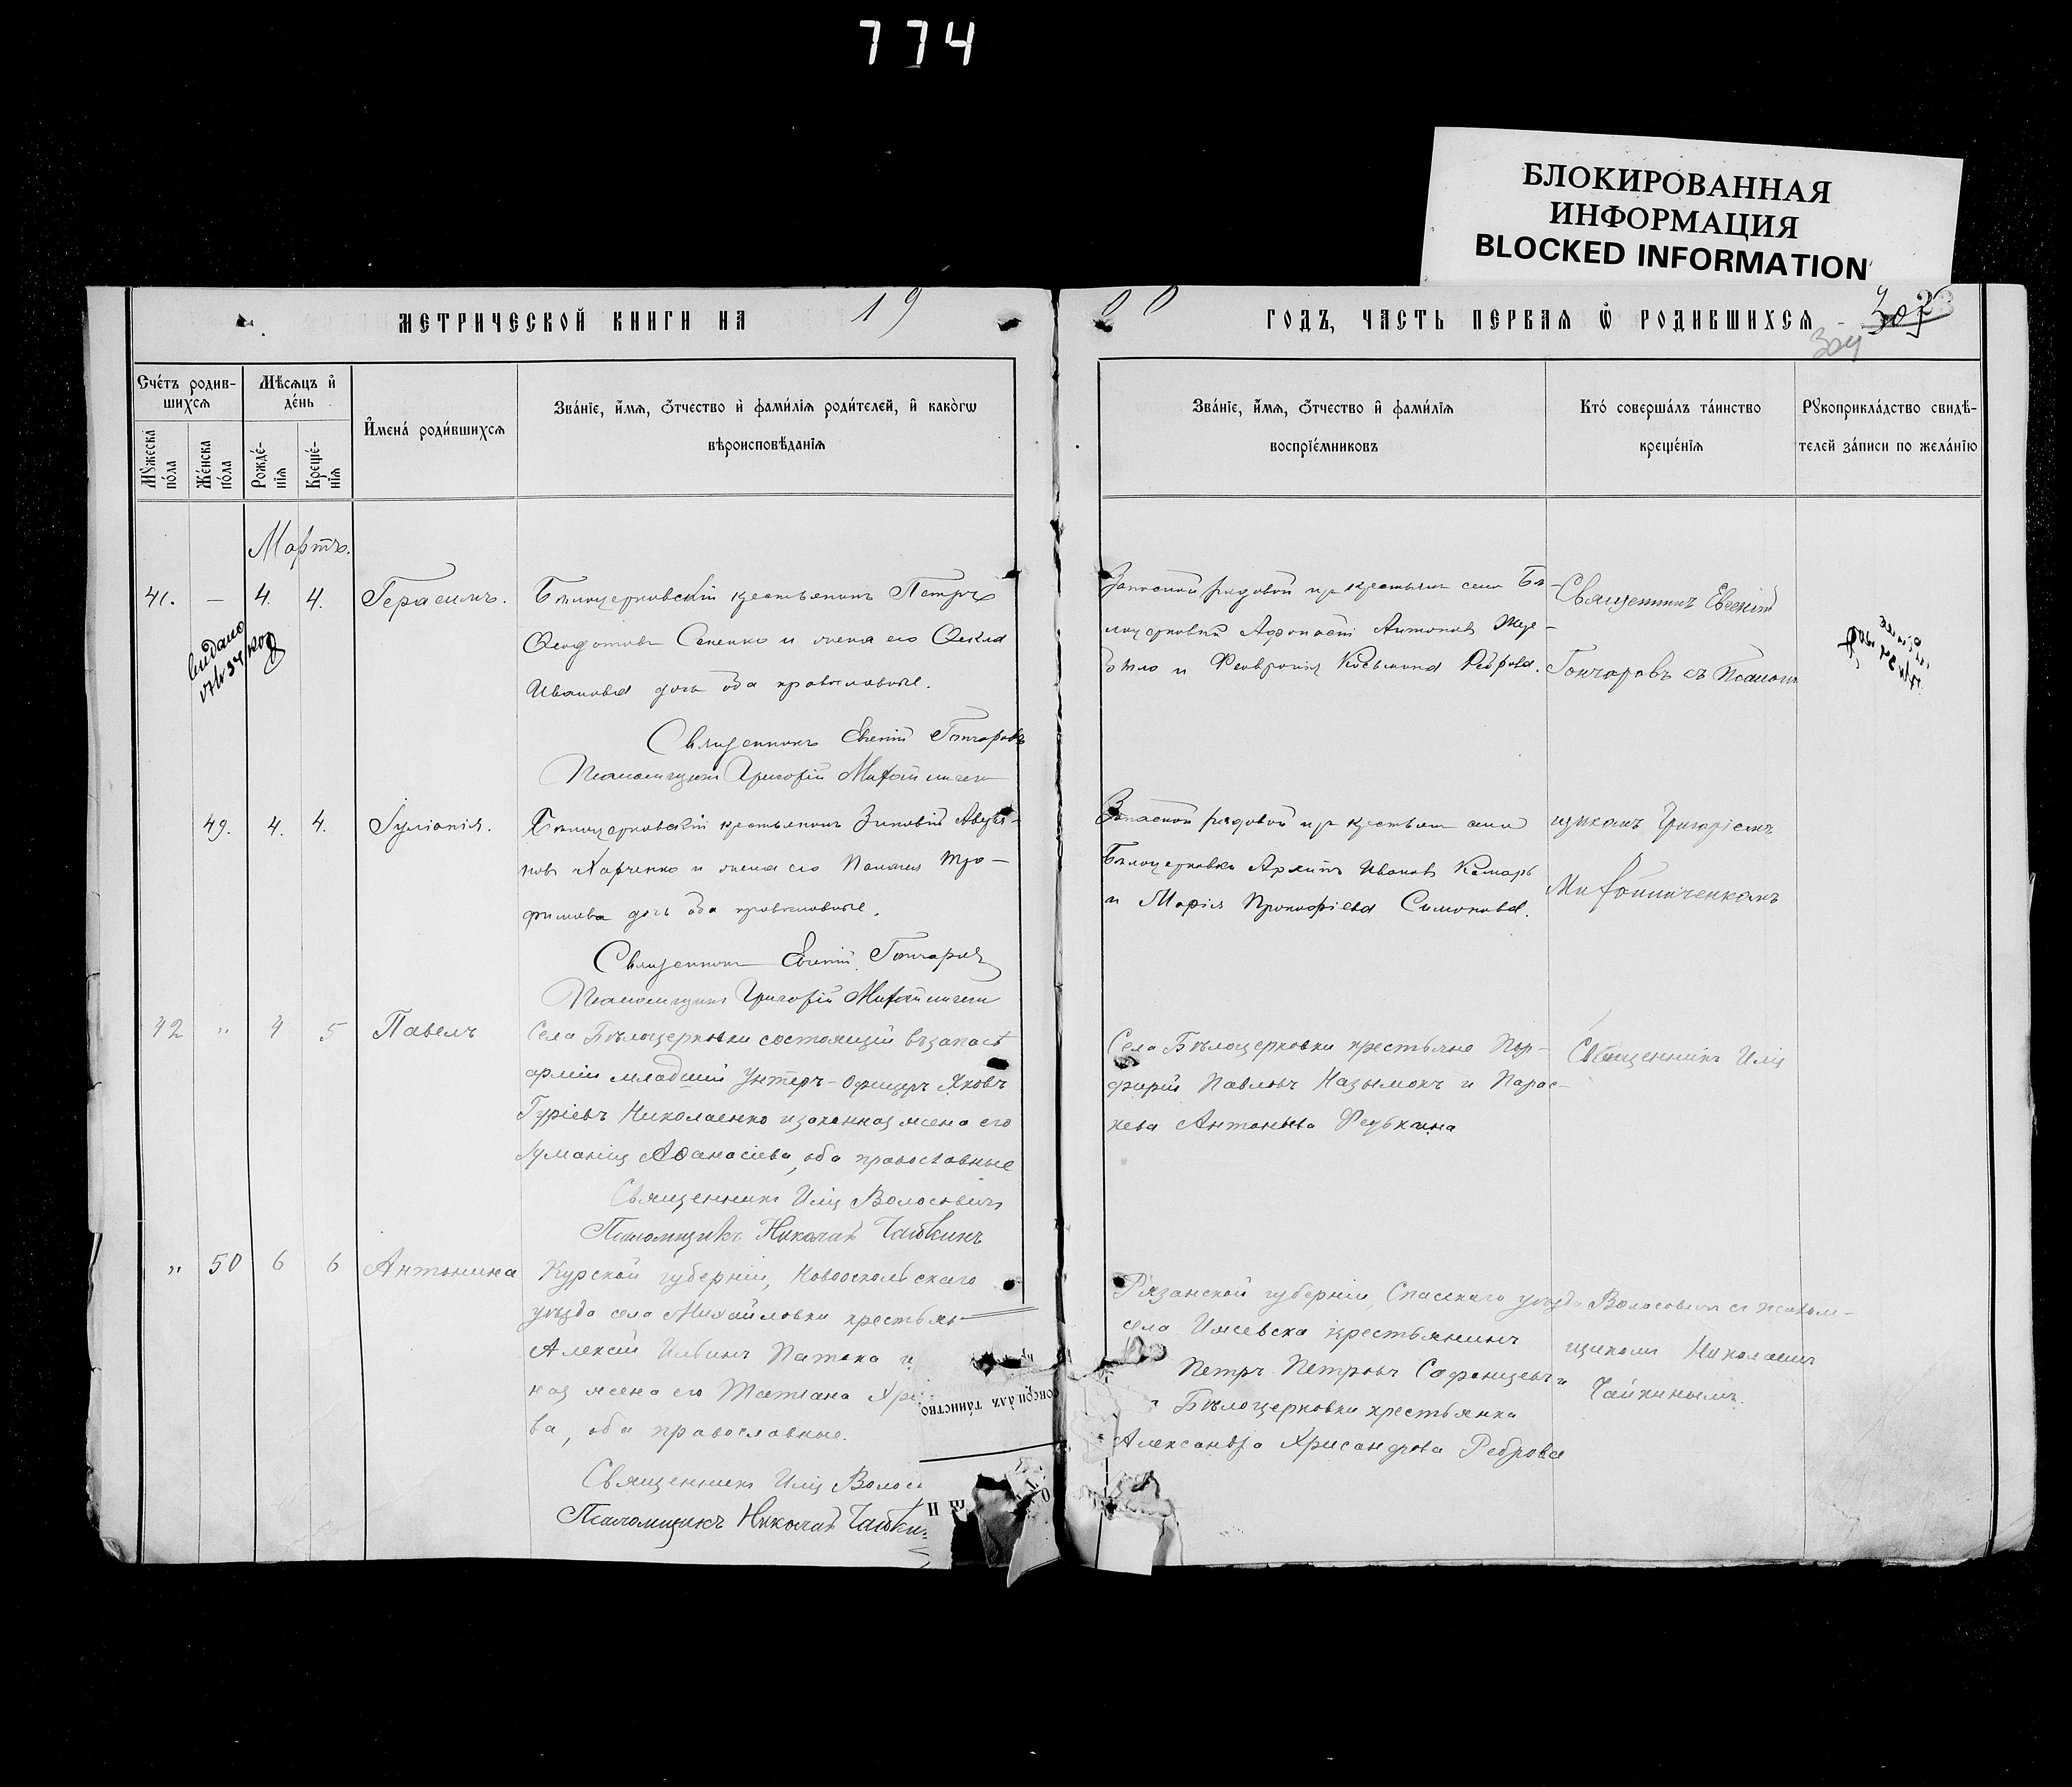 774
БЛОКИРОВАННАЯ
ИНФОРМАЦИЯ
BLOCKED INFORMATION
МЕТРИЧЕСКОЙ КНИГИ НА 19
00 ГОДЪ, ЧАСТЬ ПЕРВАЯ Ѡ РОДИВШИХСЯ
304
Счётъ родив-
шихся
Мѣсяцъ и
день
Мужеска пола
Женска пола
Рожденія
Крещенія
Имена родившихся
Званіе, имя, отчество и фамилія родителей, и какогѡ
вѣроисповѣданія
Званіе, имя, отчество и фамилія
воспріемниковъ
Кто совершалъ таинство
крещенія
Рукоприкладство свидѣ-
телей записи по желанію
Мартъ.
41. — 4. 4. Герасимъ.
Бѣлоцерковскій крестьянинъ Петръ
Ѳеодотовъ и жена его Ѳекла
Иванова дочь оба православные.
Священникъ Евгеній Гончаровъ
Псаломщикъ Григорій
Запасной рядовой изъ крестьян села Бѣ-
лоцерковки Аѳонасій Антоновъ
и Феврония Косьмина Реброва.
Священникъ Евгеній
Гончаровъ съ Псалом
49. 4. 4. Іуліанія.
Бѣлоцерковскій крестьянинъ Зиновій
новъ Харченко и жена его Пелагия Тро-
фимова дочь оба православные.
Священникъ Евгеній Гончаровъ
Псаломщикъ Григорій
Запасной рядовой изъ крестьян села
Бѣлоцерковки Архипъ Ивановъ Комаръ
и Марія Прокофіева Симонова.
щикомъ Григоріемъ
42 " 4 5 Павелъ
Села Бѣлоцерковки состоящій въ запасѣ
арміи младшій Унтеръ-Офицеръ Яковъ
Гуріевъ Николаенко и законная жена его
Аѳанасіева, оба православные
Священникъ Илія Волосевичъ
Псаломщикъ Николай Чайкинъ
Села Бѣлоцерковки крестьяне Пор-
фирій Павловъ и Парас-
кева Антоньева
Священникъ Илія
" 50 6 6 Антонина
Курской губерніи, Новооскольскаго
уѣзда села Михайловки крестьян
Алексѣй Ильинъ и
ная жена его Татіана Хри
ва, оба православные.
Священникъ Илія Волосе
Псаломщикъ Николай Чайкин
Рязанской губерніи, Спасскаго уѣзда
села Ижевска крестьянинъ
Петръ Петровъ и
Бѣлоцерковки крестьянка
Александра Хрисанфова Реброва
Волосевичъ съ псалом-
щикомъ Николаемъ
Чайкинымъ.